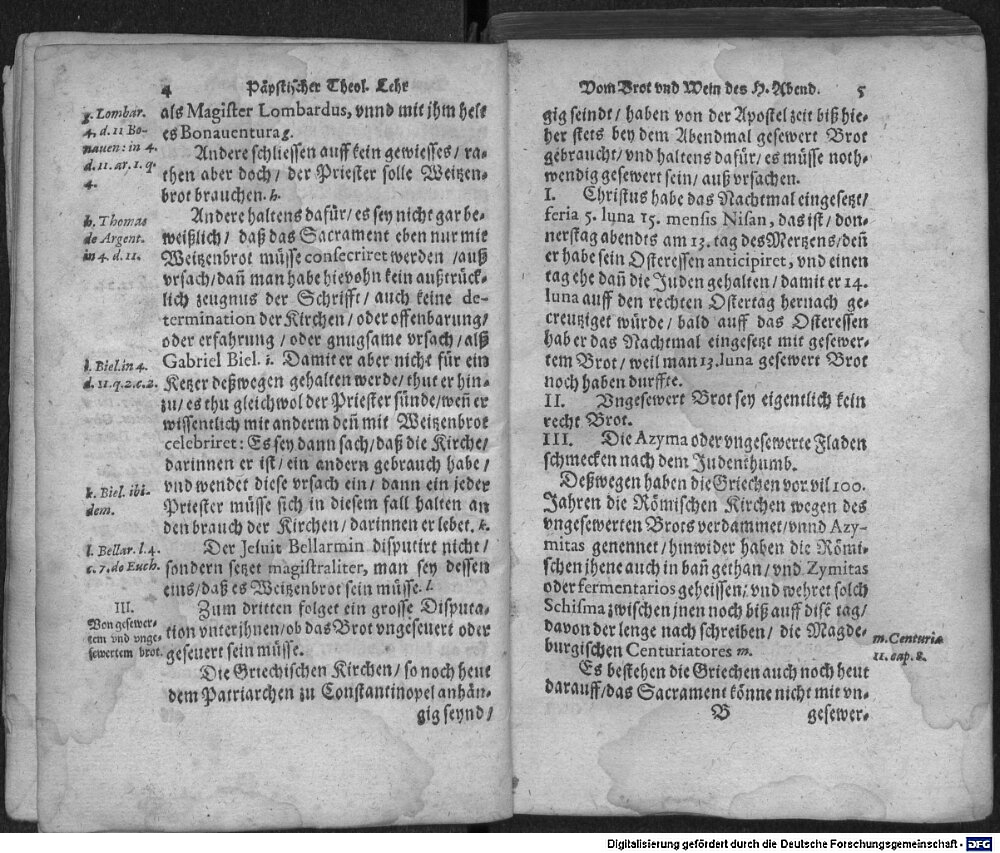 4 Päpstischer Theol. Lehr
g. Lombar.
4. d. 11 Bo-
nauen: in 4.
d. 11. ar. 1. q.
4.
als Magister Lombardus, vnnd mit jhm helt
es Bonauentura g.
Andere schliessen auff kein gewiesses / ra-
then aber doch / der Priester solle Weitzen-
brot brauchen. h.
h. Thomas
de Argent.
in 4. d. 11.
Andere haltens dafür / es sey nicht gar be-
weißlich / daß das Sacrament eben nur mit
Weitzenbrot müsse consecriret werden / auß
vrsach / dañ man habe hievohn kein außtrück-
lich zeugnus der Schrifft / auch keine de-
termination der Kirchen / oder offenbarung /
oder erfahrung / oder gnugsame vrsach / alß
Gabriel Biel. i. Damit er aber nicht für ein
i. Biel. in 4.
d. 11. q. 2. c. 2.
Ketzer deßwegen gehalten werde / thut er hin-
zu / es thu gleichwol der Priester sünde / weñ er
wissentlich mit anderm deñ mit Weitzenbrot
celebriret: Es sey dann sach / daß die Kirche /
darinnen er ist / ein andern gebrauch habe /
vnd wendet diese vrsach ein / dann ein jeder
Priester müsse sich in diesem fall halten an
den brauch der Kirchen / darinnen er lebet. k.
k. Biel. ibi-
dem.
Der Jesuit Bellarmin disputirt nicht /
sondern setzet magistraliter, man sey dessen
eins / daß es Weitzenbrot sein müsse. l.
l. Bellar. l. 4.
c. 7. de Euch.
III.
Von gesewer-
tem vnd vnge-
sewertem brot.
Zum dritten folget ein grosse Disputa-
tion vnter jhnen / ob das Brot vngeseuert oder
geseuert sein müsse.
Die Griechischen Kirchen / so noch heut
dem Patriarchen zu Constantinopel anhän-
gig seynd /
Vom Brot vnd Wein des H. Abend. 5
gig seindt / haben von der Apostel zeit biß hie-
her stets bey dem Abendmal gesewert Brot
gebraucht / vnd haltens dafür / es müsse noth-
wendig gesewert sein / auß vrsachen.
I. Christus habe das Nachtmal eingesetzt /
feria 5. luna 15. mensis Nisan, das ist / don-
nerstag abendts am 13. tag des Mertzens / deñ
er habe sein Osteressen anticipiret, vnd einen
tag ehe dañ die Juden gehalten / damit er 14.
luna auff den rechten Ostertag hernach ge-
creutziget würde / bald auff das Osteressen
hab er das Nachtmal eingesetzt mit gesewer-
tem Brot / weil man 13. luna gesewert Brot
noch haben durffte.
II. Vngesewert Brot sey eigentlich kein
recht Brot.
III. Die Azyma oder vngesewerte Fladen
schmecken nach dem Judenthumb.
Deßwegen haben die Griechen vor vil 100.
Jahren die Römischen Kirchen wegen des
vngesewerten Brots verdammet / vnnd Azy-
mitas genennet / hinwider haben die Römi-
schen jhene auch in bañ gethan / vnd Zymitas
oder fermentarios geheissen; vnd wehret solch
Schisma zwischen jnen noch biß auff disē tag /
davon der lenge nach schreiben / die Magde-
burgischen Centuriatores m.
m. Centuria
11. cap. 8.
Es bestehen die Griechen auch noch heut
darauff / das Sacrament könne nicht mit vn-
B gesewer-
Digitalisierung gefördert durch die Deutsche Forschungsgemeinschaft - DFG